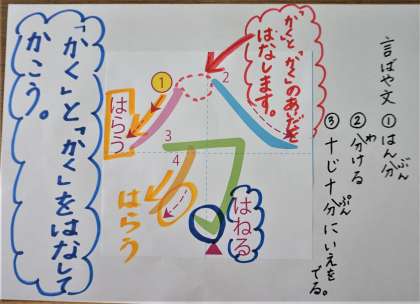 言ばや文
①はん分
ぶん
②分ける
わ
③十じ十分にいえを
ぷん
でる。
「かく」と「かく」のあいだを
はなします。
①
2
3
4
はらう
はらう
はねる
「かく」と「かく」をはなして
かこう。